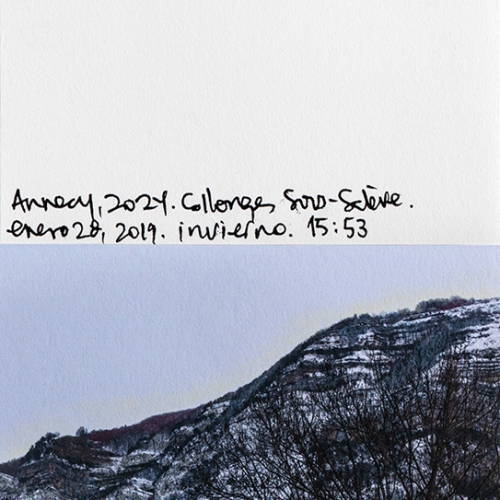 Annecy, 2024. Collonges Sous-Salève.
enero 28, 2019. invierno. 15:53